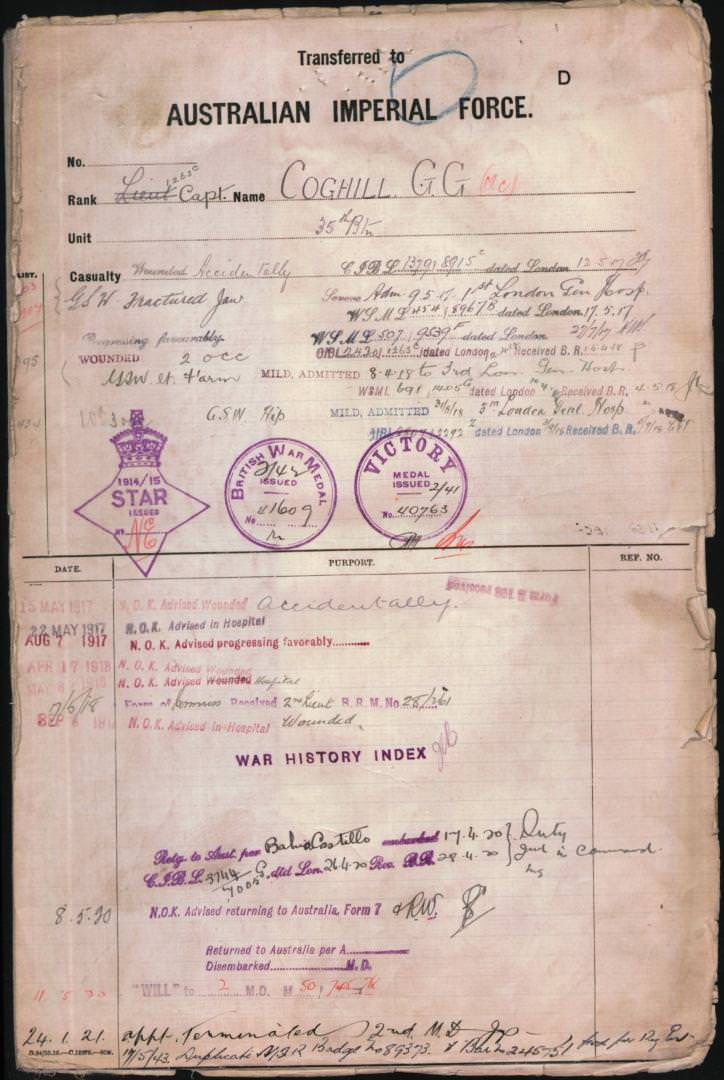 Transferred to
D
AUSTRALIAN IMPERIAL FORCE.
No.
Rank Lieut Capt. Name COGHILL. G.G (MC)
1263c
Unit 35th Btn
Casualty Wounded Accidentally C.I.B.L. 1379/8915c dated London 12.5.17
G.S.W Fractured Jaw
Adm 9.5.17. 1st London Gen Hosp.
W.S.M.L 454/8967B dated London. 17.5.17
Progressing favourably. W.S.M.L 507/9539F dated London
WOUNDED 2 OCC CIBL 2430/1263c dated London Received B.R.
GSW Lt. F'arm MILD, ADMITTED 8-4-18 to 3rd Lon. Gen. Hosp.
WSML 691/1405G dated London Received B.R. 4-5-18
G.S.W Hip MILD, ADMITTED 31/8/18 3rd London Genl. Hosp
dated London Received B.R.
1914/15
STAR
ISSUED
No.
BRITISH WAR MEDAL
2/42
ISSUED
No 41609
VICTORY
MEDAL
ISSUED 2/41
No. 40763
DATE. PURPORT. REF. NO.
15 MAY 1917 N.O.K. Advised Wounded Accidentally.
22 MAY 1917 N.O.K. Advised in Hospital
AUG 7 1917 N.O.K. Advised progressing favorably
APR 17 1918 N.O.K. Advised Wounded
MAY N.O.K. Advised Wounded Hospital
7/5/18 Form of Received 2nd Lieut B.R.M. No 28/361
SEP N.O.K. Advised in Hospital Wounded.
WAR HISTORY INDEX
Retg. to Aust. per Bahia Castillo embarked 17.4.20 Duty
C.I.B.L. 3744/7005G dtd Lon. 26.4.20 Rec. B.R. 28.4.20 2nd in Command
8.5.20 N.O.K. Advised returning to Australia, Form 7
Returned to Australia per A
Disembarked M.D.
11.5.20 "WILL" to 2 M.D. M 50/
24.1.21. appt. Terminated 2nd M.D
17/5/43. Duplicate R.A.S Badge No 89373.